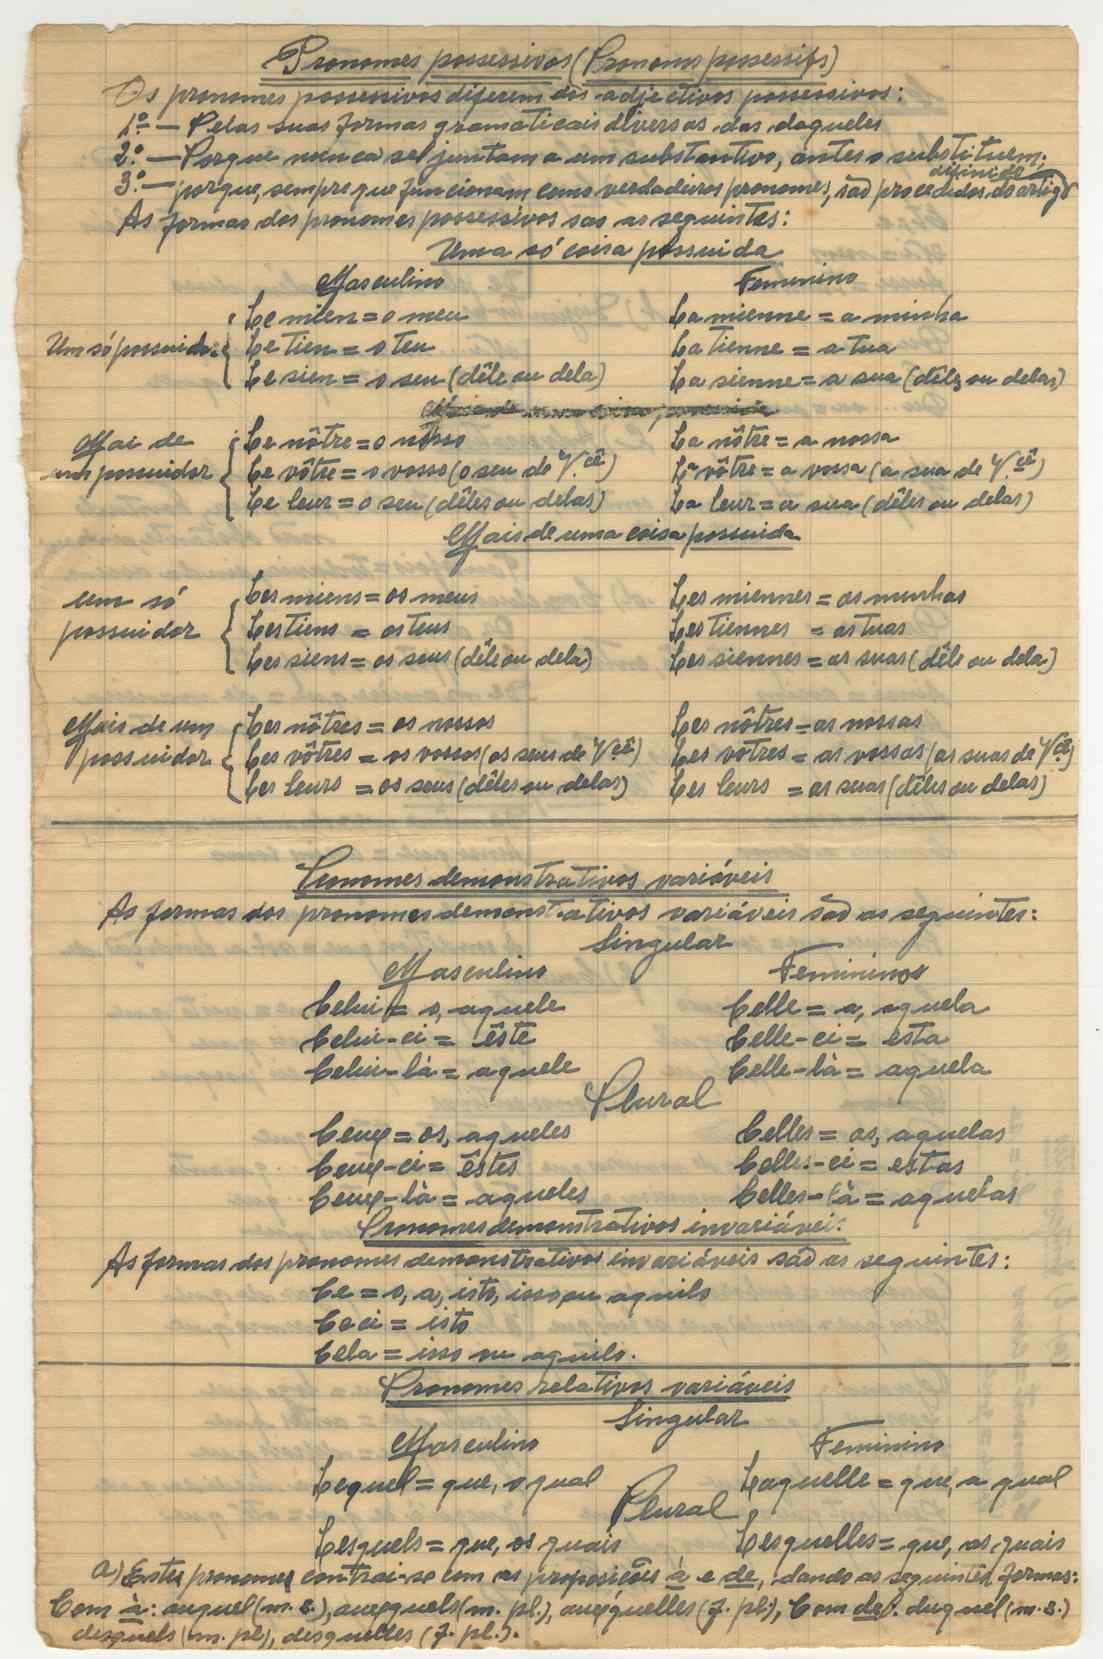 Pronomes possessivos (Pronoms possessifs)
Os pronomes possessivos diferem dos adjectivos possessivos:
1.º — Pelas suas formas gramaticais diversas das daqueles
2.º — Porque nunca se juntam a um substantivo, antes o substituem;
definido
3.º — porque, sempre que funcionam como verdadeiros pronomes, são procedidos do artigo
As formas dos pronomes possessivos são as seguintes:
Uma só coisa possuida
Masculino Feminino
Le mien = o meu La mienne = a minha
Um só possuidor Le tien = o teu La tienne = a tua
Le sien = o seu (dêle ou dela) La sienne = a sua (dêles ou delas)
Mais de Le nôtre = o nosso La nôtre = a nossa
um possuidor Le vôtre = o vosso (o seu de Vcê) La vôtre = a vossa (a sua de Vcê)
Le leur = o seu (dêles ou delas) La leur = a sua (dêles ou delas)
Mais de uma coisa possuida
um só Les miens = os meus Les miennes = as minhas
possuidor Les tiens = os teus Les tiennes = as tuas
Les siens = os seus (dêle ou dela) Les siennes = as suas (dêle ou dela)
Mais de um Les nôtres = os nossos Les nôtres = as nossas
possuidor Les vôtres = os vossos (os seus de Vcê) Les vôtres = as vossas (as suas de Vcê)
Les leurs = os seus (dêles ou delas) Les leurs = as suas (dêles ou delas)
Pronomes demonstrativos variáveis
As formas dos pronomes demonstrativos variáveis são as seguintes:
Singular
Masculino Feminino
Celui = o, aquele Celle = a, aquela
Celui-ci = êste Celle-ci = esta
Celui-là = aquele Celle-là = aquela
Plural
Ceux = os, aqueles Celles = as, aquelas
Ceux-ci = êstes Celles-ci = estas
Ceux-là = aqueles Celles-là = aquelas
Pronomes demonstrativos invariáveis
As formas dos pronomes demonstrativos invariáveis são as seguintes:
Ce = o, a, isto, isso ou aquilo
Ceci = isto
Cela = isso ou aquilo.
Pronomes relativos variáveis
Singular
Masculino Feminino
Lequel = que, o qual Laquelle = que, a qual
Plural
Lesquels = que, os quais Lesquelles = que, as quais
a) Estes pronomes contrai-se com as proposicões à e de, dando as seguintes formas:
Com à: auquel (m. s.), auxquels (m. pl.), auxquelles (f. pl.), Com de: duquel (m. s.)
desquels (m. pl), desquelles (f. pl.).